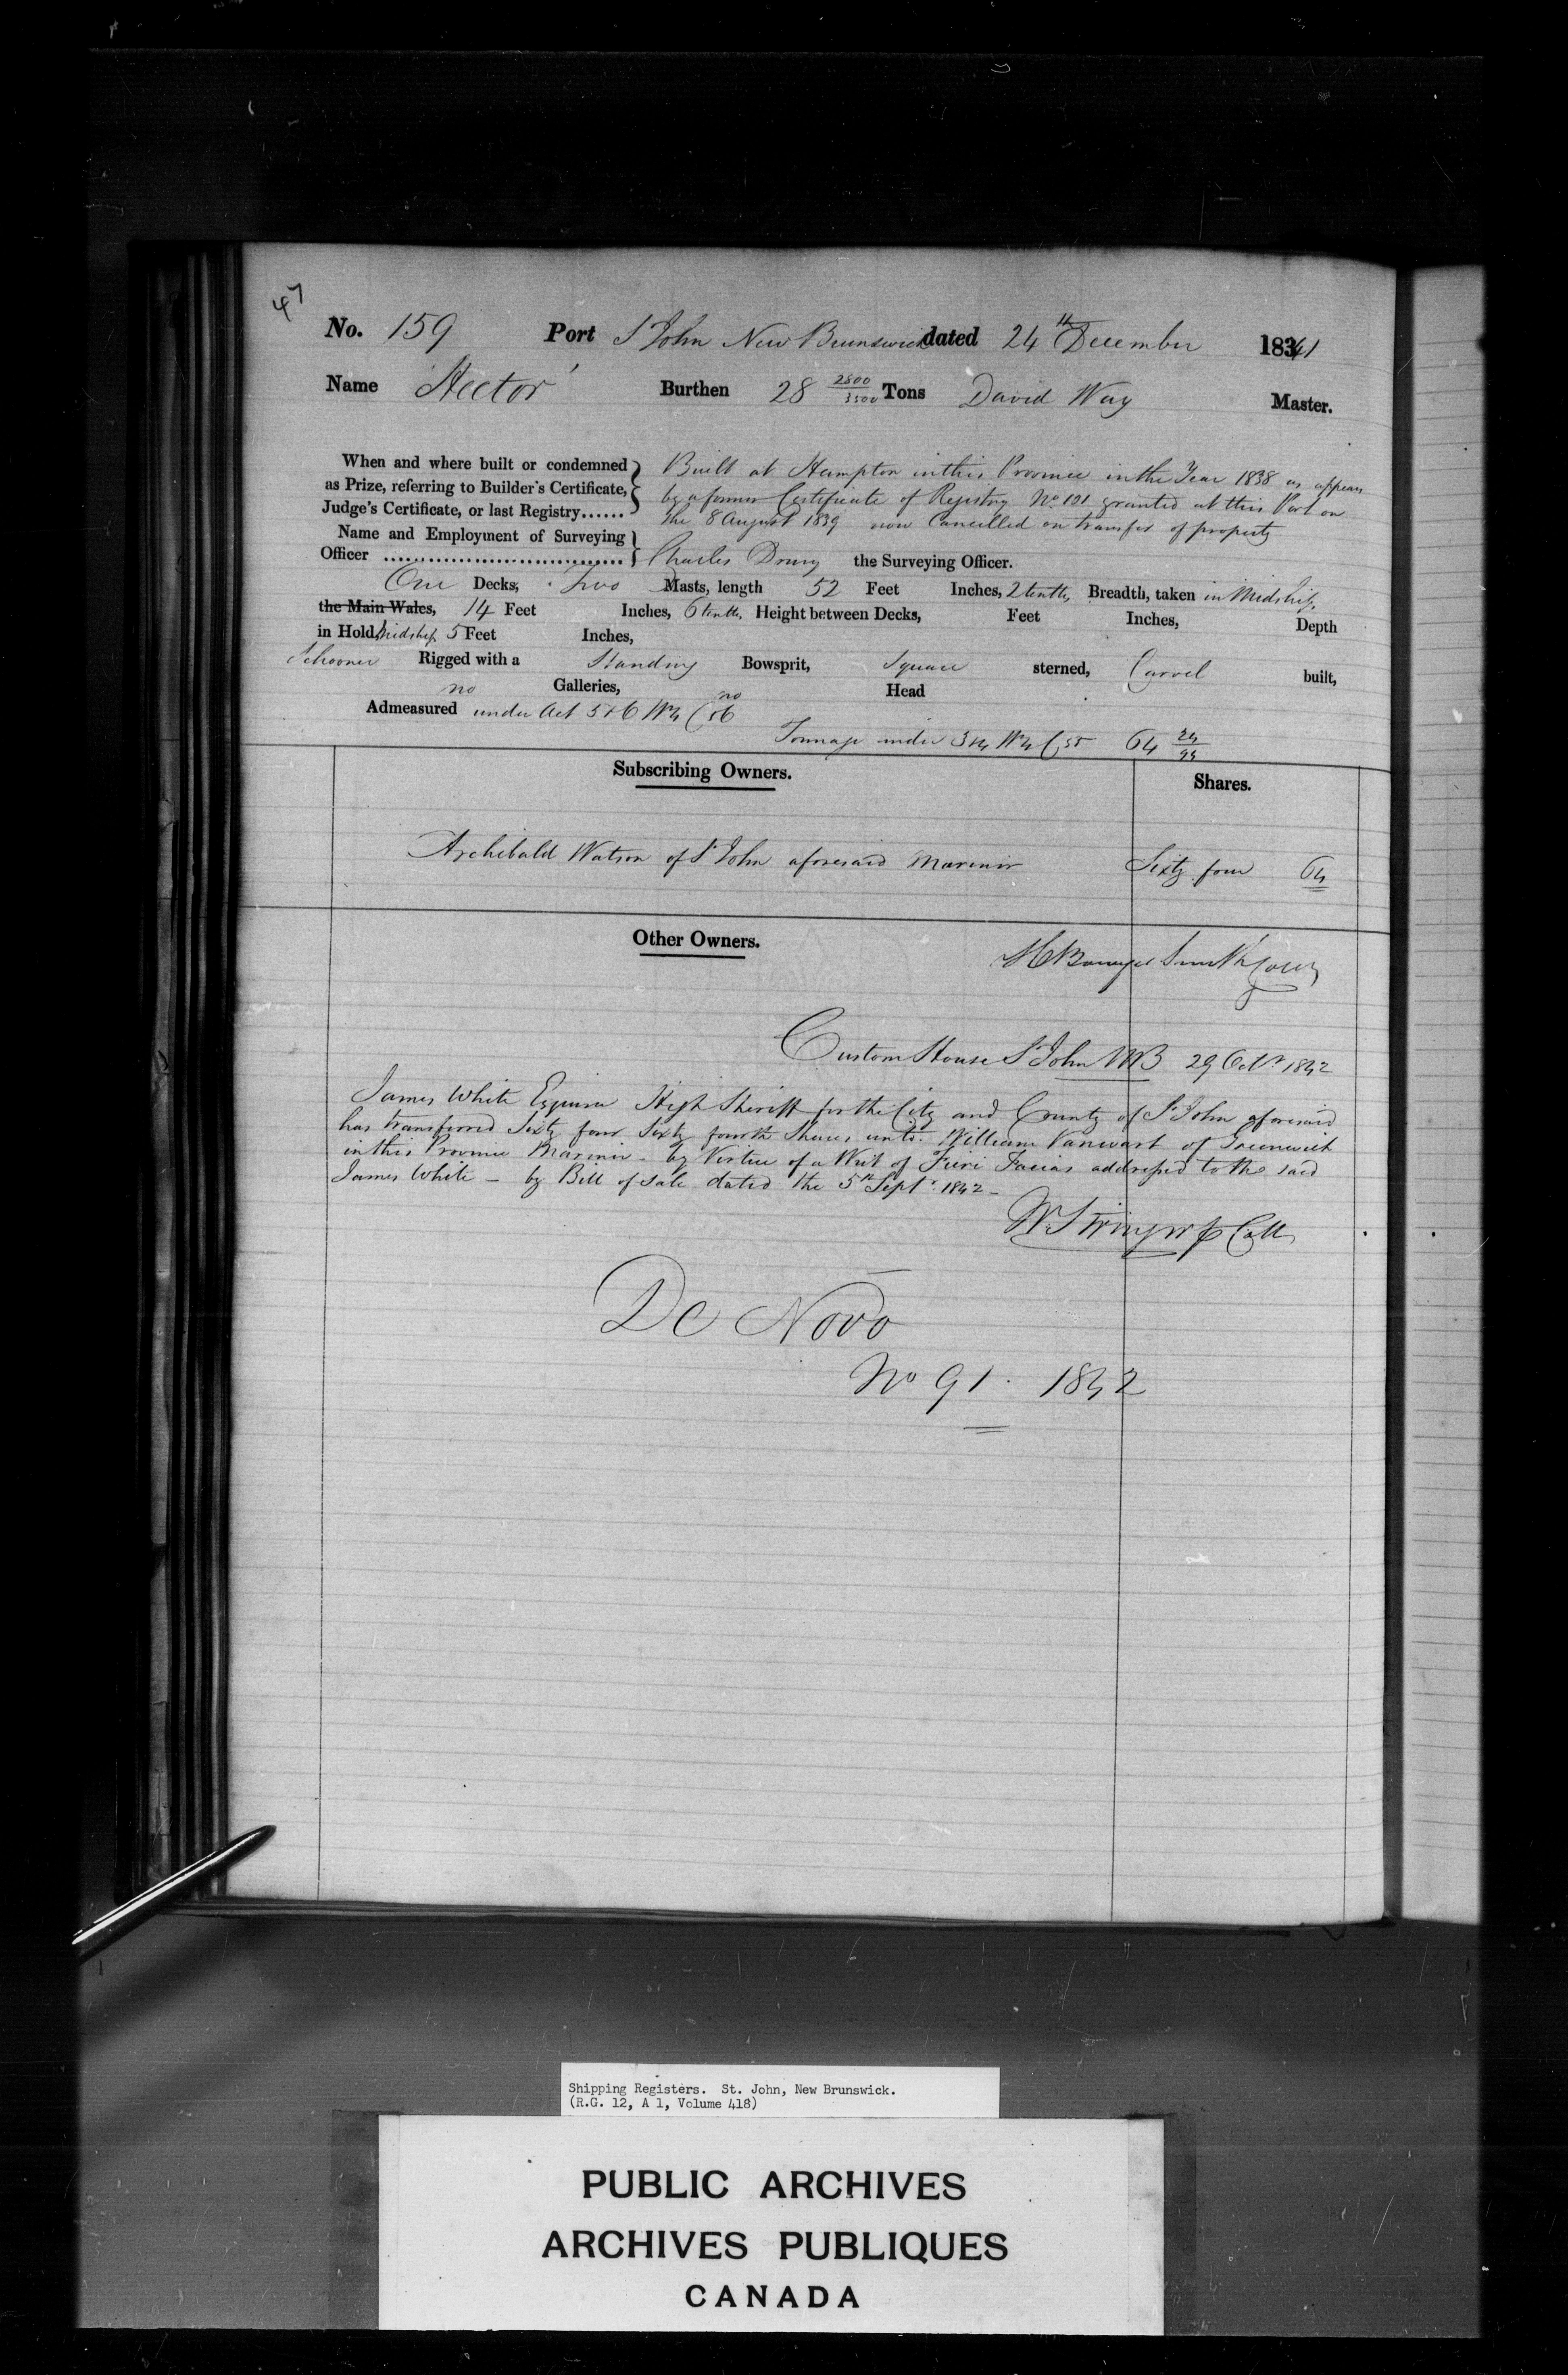 47
No. 159 Port St John New Brunswick dated 24th December 1841
Name 'Hector' Burthen 28 2500/3500 Tons David Way Master.
When and where built or condemned as Prize, referring to Builder's Certificate, Judge's Certificate, or last Registry......
Built at Hampton in this Province in the Year 1838 as appears
by a former Certificate of Registry No. 101 granted at this Port on
the 8 August 1839 now Cancelled on transfer of property
Name and Employment of Surveying
Officer .............................. Charles Drury the Surveying Officer.
One Decks, Two Masts, length 52 Feet Inches, 2 tenths, Breadth, taken in Midships,
the Main Wales, 14 Feet Inches, 6 tenths, Height between Decks, Feet Inches, Depth
in Hold, Midships 5 Feet Inches,
Schooner Rigged with a Standing Bowsprit, Square sterned, Carvel built,
no Galleries, no Head
Admeasured under Act 5 & 6 Wm 4 C 56
Tonnage under 3 & 4 Wm 4 C 55 64 24/94
Subscribing Owners. Shares.
Archibald Watson of St John aforesaid Mariner Sixty four 64
Other Owners.
H Bowyer Smith
Custom House St John NB 29 Octr 1842
James White Esquire High Sheriff for the City and County of St John aforesaid
has transferred Sixty four Sixty fourth Shares unto William Vanwart of Greenwich
in this Province Mariner - by Virtue of a Writ of Fieri Facias addressed to the said
James White - by Bill of Sale dated the 5th Septr 1842 -
De Novo
No 91. 1842
Shipping Registers. St. John, New Brunswick.
(R.G. 12, A 1, Volume 418)
PUBLIC ARCHIVES
ARCHIVES PUBLIQUES
CANADA